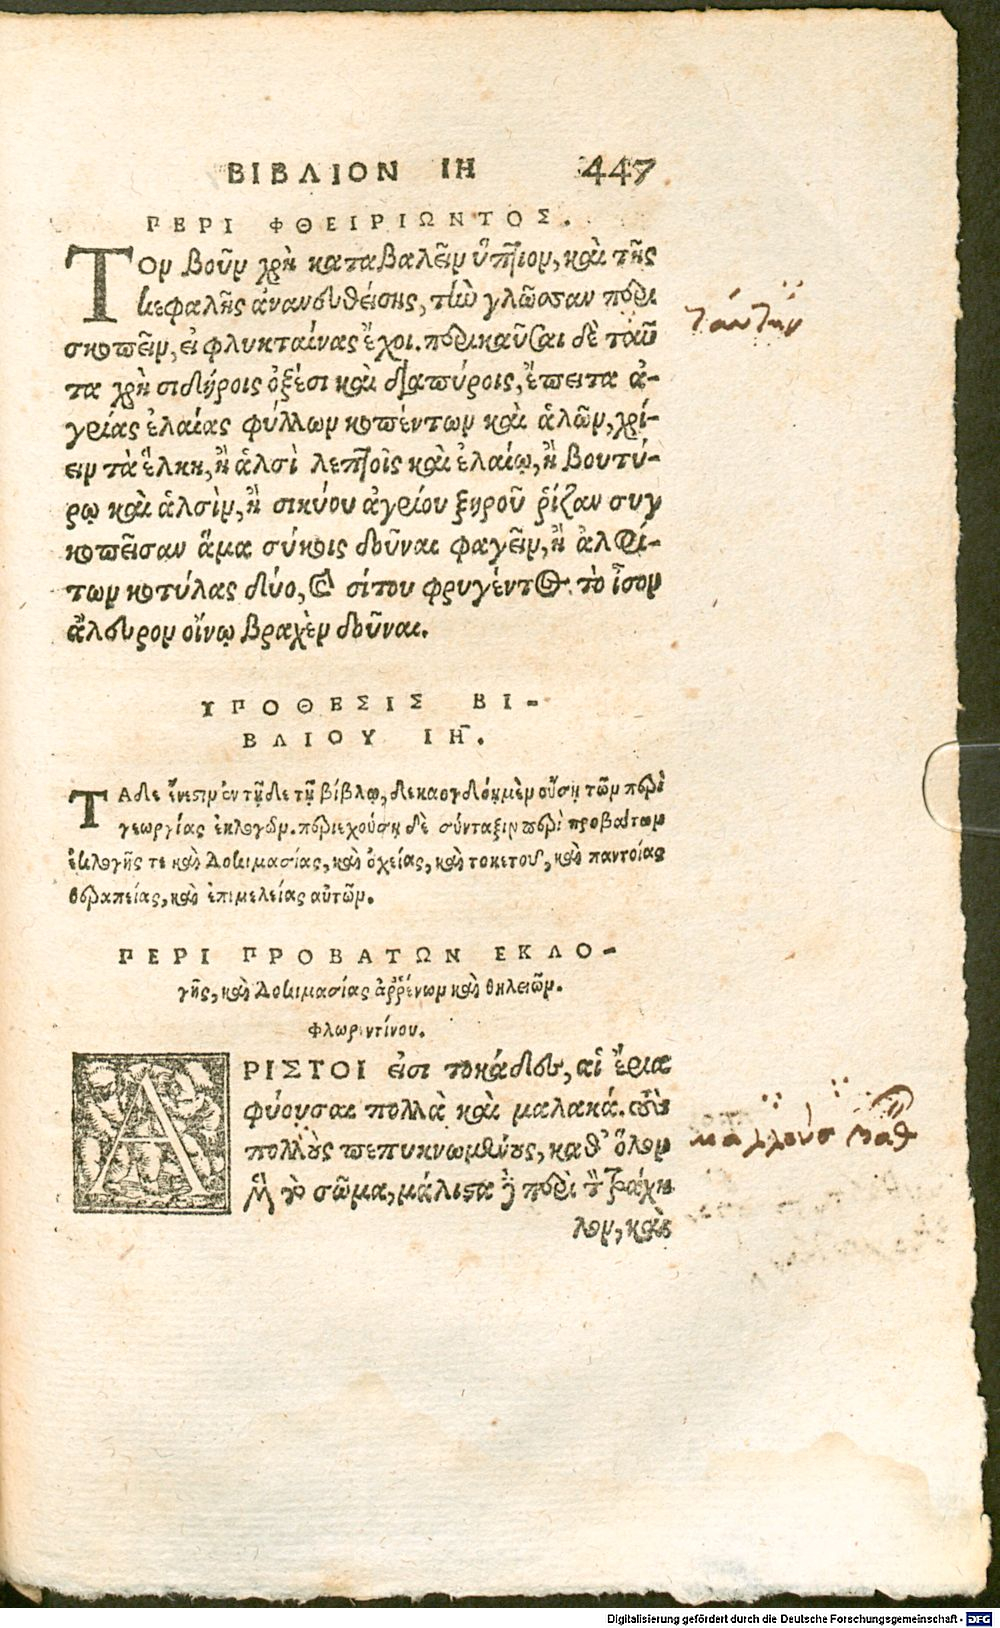 ΒΙΒΛΙΟΝ ΙΗ 447
ΠΕΡΙ ΦΘΕΙΡΙΩΝΤΟΣ.
Τὸν βοῦν χρὴ καταβαλεῖν ὕπτιον, καὶ τῆς
κεφαλῆς ἀνανευθείσης, τὴν γλῶσσαν περι
σκοπεῖν, εἰ φλυκταίνας ἔχοι. περικαῦσαι δὲ ταύ
τα χρὴ σιδήροις ὀξέσι καὶ διαπύροις, ἔπειτα ἀ-
γρίας ἐλαίας φύλλων κοπέντων καὶ ἁλῶν, χρί-
ειν τὰ ἕλκη, ἢ ἁλσὶ λεπτοῖς καὶ ἐλαίῳ, ἢ βουτύ-
ρῳ καὶ ἁλσὶν, ἢ σικύου ἀγρίου ξηροῦ ῥίζαν συγ
κοπεῖσαν ἅμα σύκοις δοῦναι φαγεῖν, ἢ ἀλφί-
των κοτύλας δύο, καὶ σίτου φρυγέντος τὸ ἶσον
ἄλευρον οἴνῳ βραχὲν δοῦναι.
ΥΠΟΘΕΣΙΣ ΒΙ-
ΒΛΙΟΥ ΙΗ.
ΤΑδε ἔνεστιν ἐν τῇδε τῇ βίβλῳ, δεκαογδόῃ μὲν οὔσῃ τῶν περὶ
γεωργίας ἐκλογῶν. περιεχούσῃ δὲ σύνταξιν περὶ προβάτων
ἐκλογῆς τε καὶ δοκιμασίας, καὶ ὀχείας, καὶ τοκετοῦ, καὶ παντοίας
θεραπείας, καὶ ἐπιμελείας αὐτῶν.
ΠΕΡΙ ΠΡΟΒΑΤΩΝ ΕΚΛΟ-
γῆς, καὶ δοκιμασίας ἀῤῥένων καὶ θηλειῶν.
Φλωρεντίνου.
ΑΡΙΣΤΟΙ εἰσι τοκάδες, αἱ ἔρια
φύουσαι πολλὰ καὶ μαλακά. τοὺς
πολλοὺς πεπυκνωμένους, καθ' ὅλον
τὸ σῶμα, μάλιστα δὲ περὶ τὸν τράχη
λον, καὶ
ταύτην
μαλλοὺς
Digitalisierung gefördert durch die Deutsche Forschungsgemeinschaft - DFG